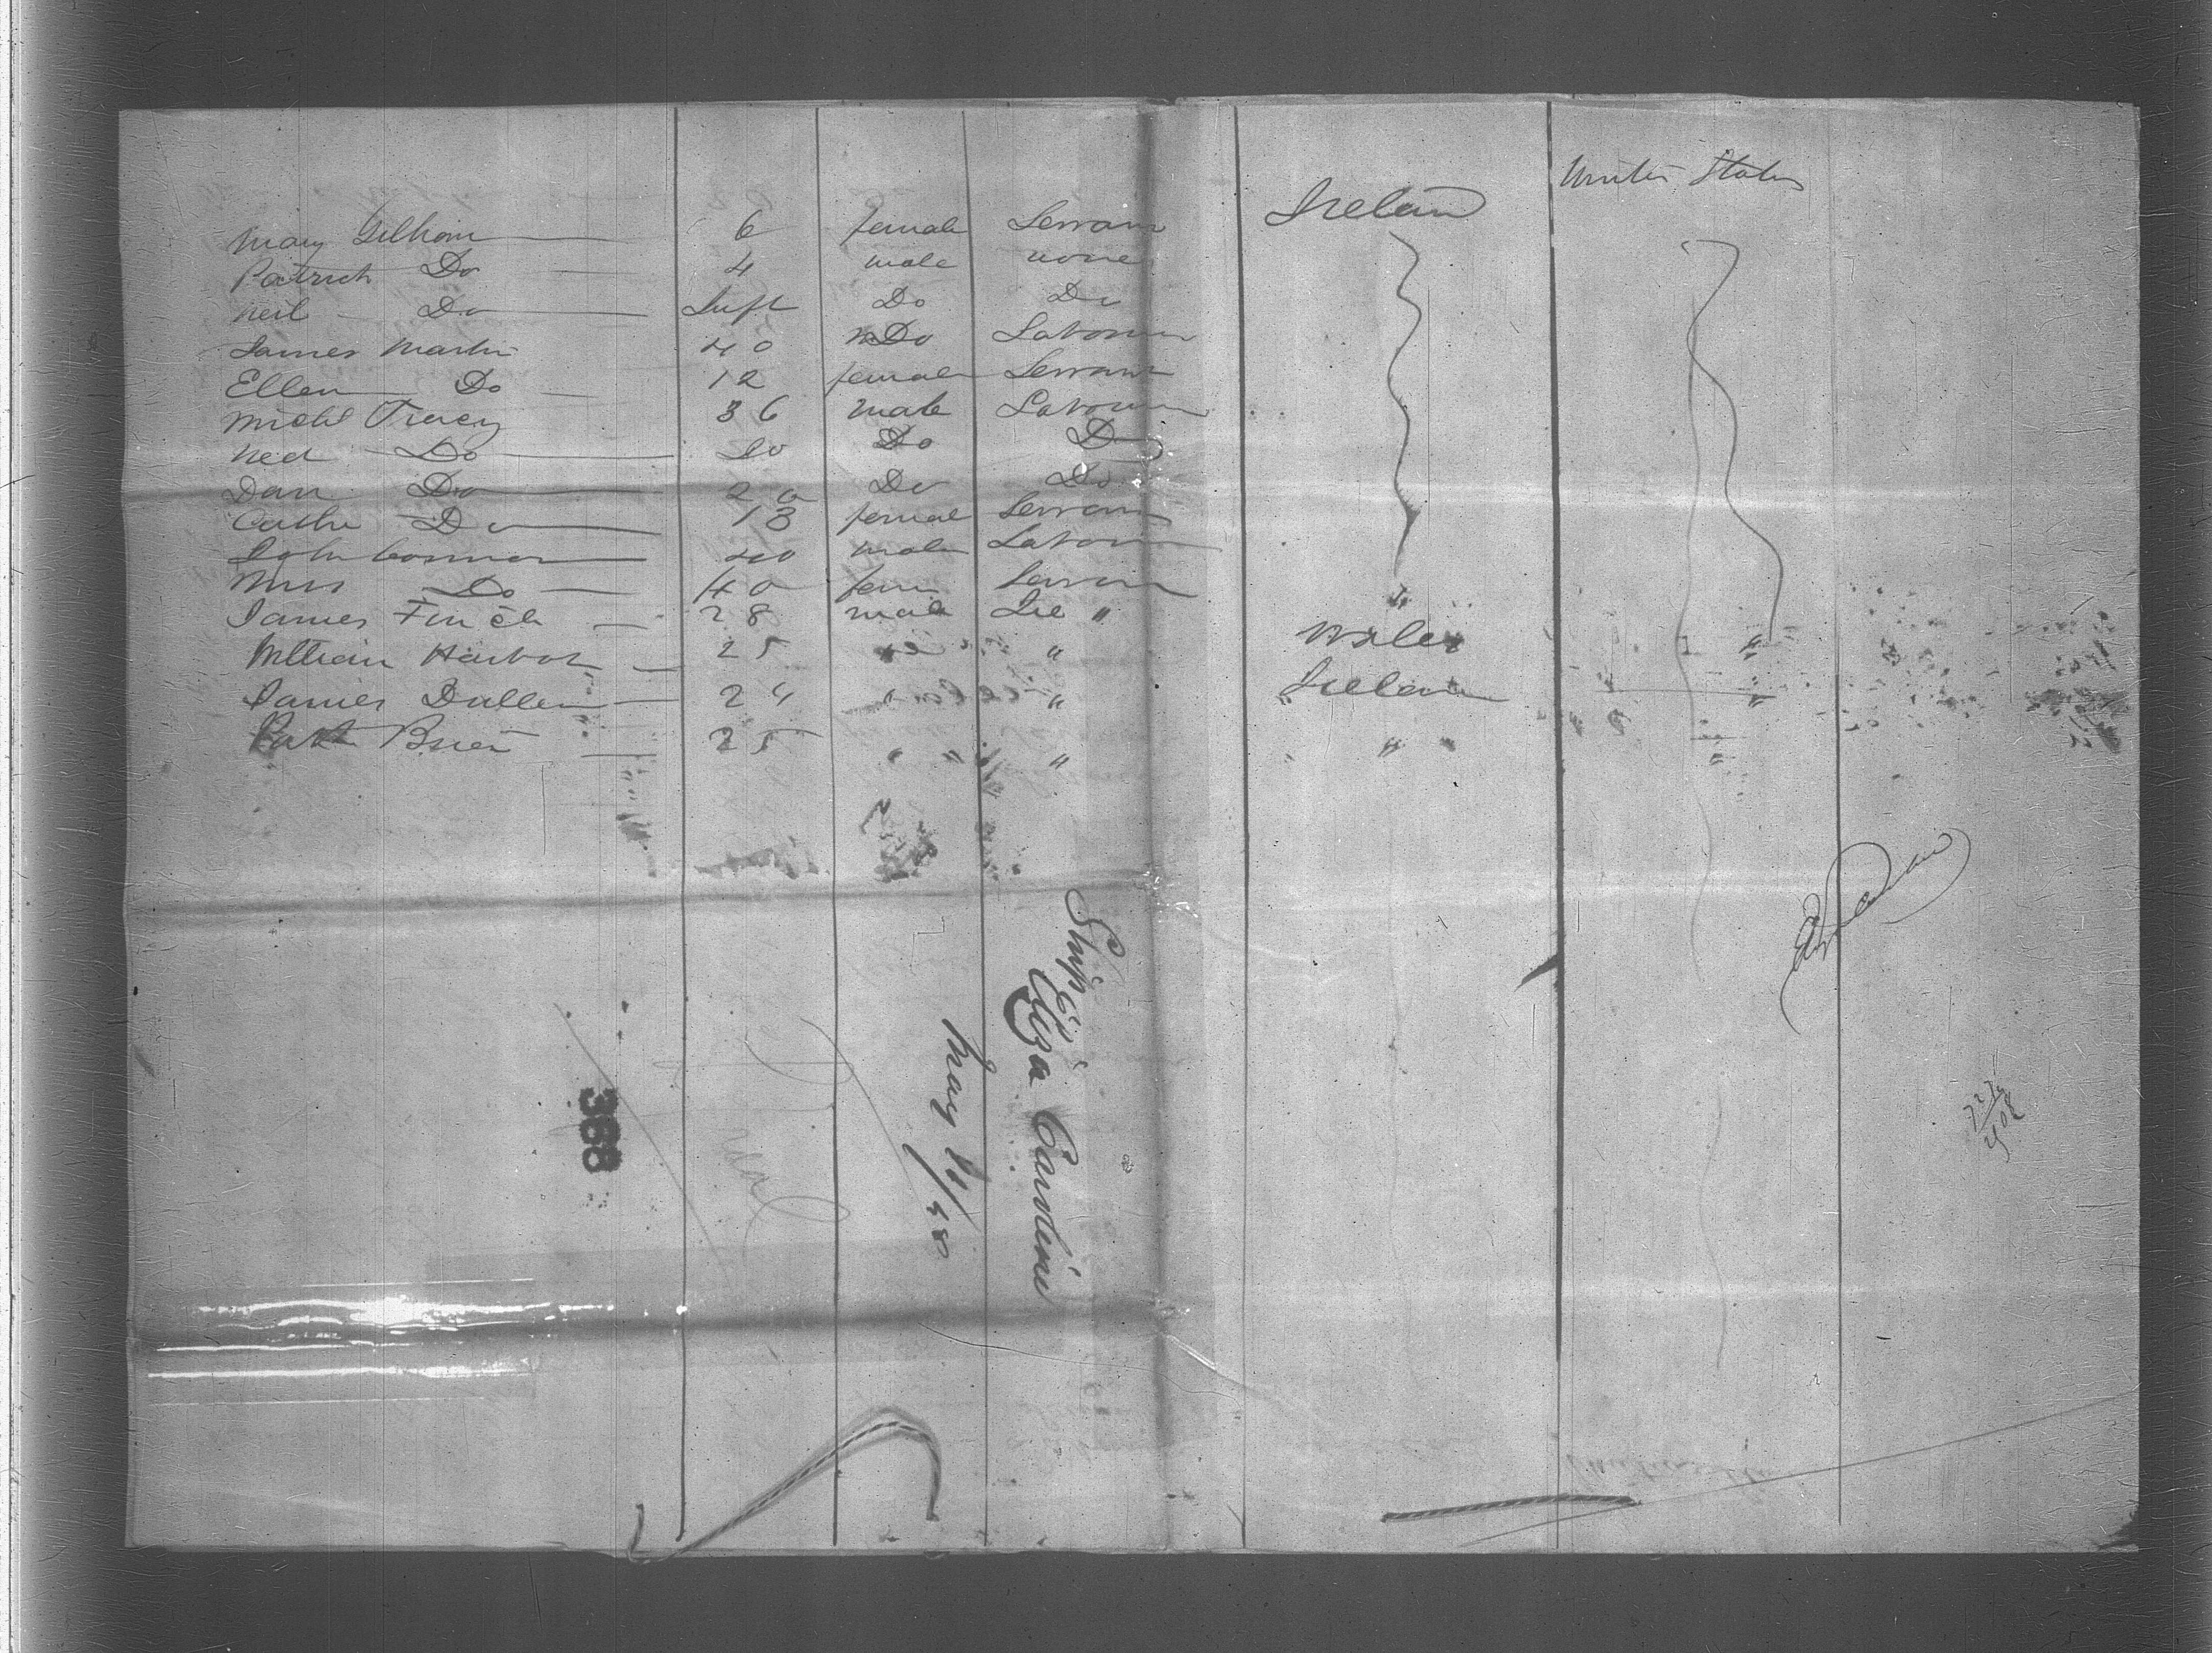 Ireland United States
Mary Gilhom 6 female Servant
Patrick Do 4 male none
Neil Do Inft Do Do
James Martin 40 Do Labourer
Ellen Do 12 female Servant
Michl Tracy 36 male Labourer
Ned Do 20 Do Do
Dan Do 20 Do Do
Cathe Do 18 female Servant
John Connor 40 male Labour
Mrs Do 40 fem Servan
James Finch 28 male "
William 25 " Wales "
James Dullen 24 " " Ireland "
Patk Brien 25 " " " " "
Ship Eliza Caroline
May 11/48
368